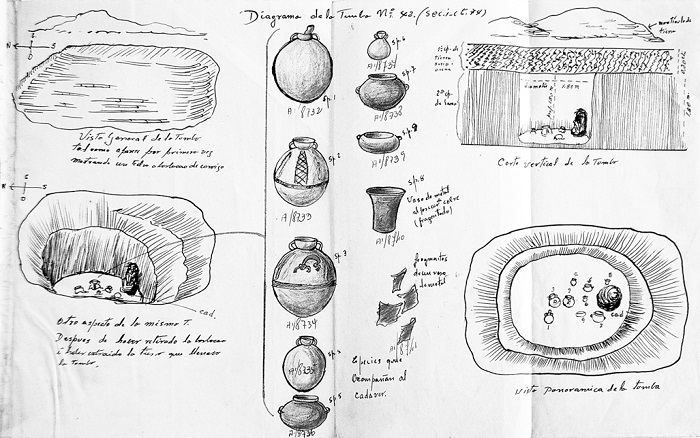 Diagrama de la Tumba Nº 42. (sec. i. ct. 74)
N
S
Vista General de la Tumba
tal como aparece por primera vez
S
Otro aspecto de la misma T.
Despues de haber retirado la
i haber extraido la tierra que llenaba
la tumba.
cad.
sp. 1
A-1/8732
sp. 2
A-1/8733
sp. 3
A-1/8734
A-1/8735
sp. 5
A-1/8736
sp. 6
sp. 7
A-1/8738
A-1/8739
sp. 8
Vaso de metal
al parecer cobre
(fragmentado)
fragmentos
de un vaso
de metal
Especies que
acompañan al
cadaver.
montículo de
tierra
diametro 1.80 m
Corte vertical de la Tumba
cad.
Vista panoramica de la tumba